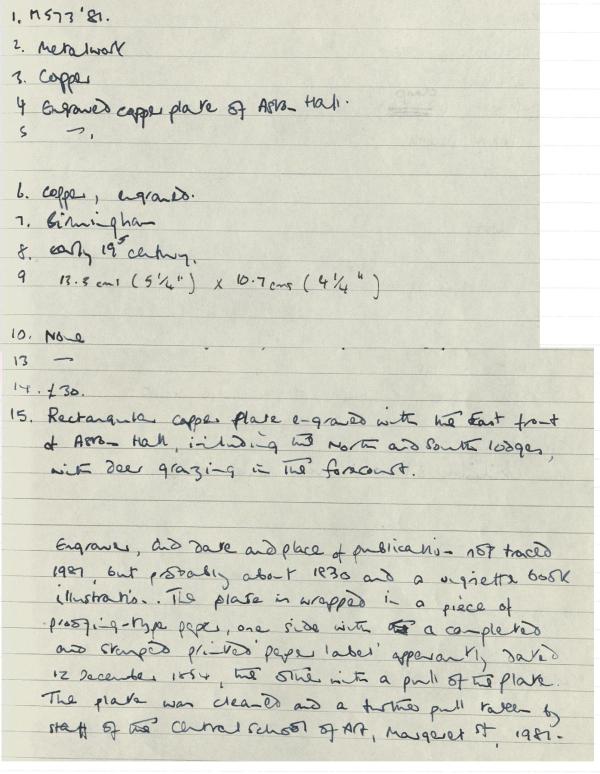 1. M573'81.
2. Metalwork
3. Copper
4 Engraved copper plate of Aston Hall.
5 —,
6. Copper, engraved.
7. Birmingham
8. early 19th century.
9 13.3 cms (5 1/4") x 10.7 cms (4 1/4")
10. None
13 —
14. £30.
15. Rectangular copper plate engraved with the East front
of Aston Hall, including the North and South lodges,
with deer grazing in the forecourt.
Engraver, and date and place of publication not traced
1981, but probably about 1830 and a vignette book
illustration. The plate is wrapped in a piece of
proofing-type paper, one side with a completed
and stamped printed 'paper label' apparently dated
12 December 1854, the other with a pull of the plate.
The plate was cleaned and a further pull taken by
staff of the Central School of Art, Margaret St, 1981.